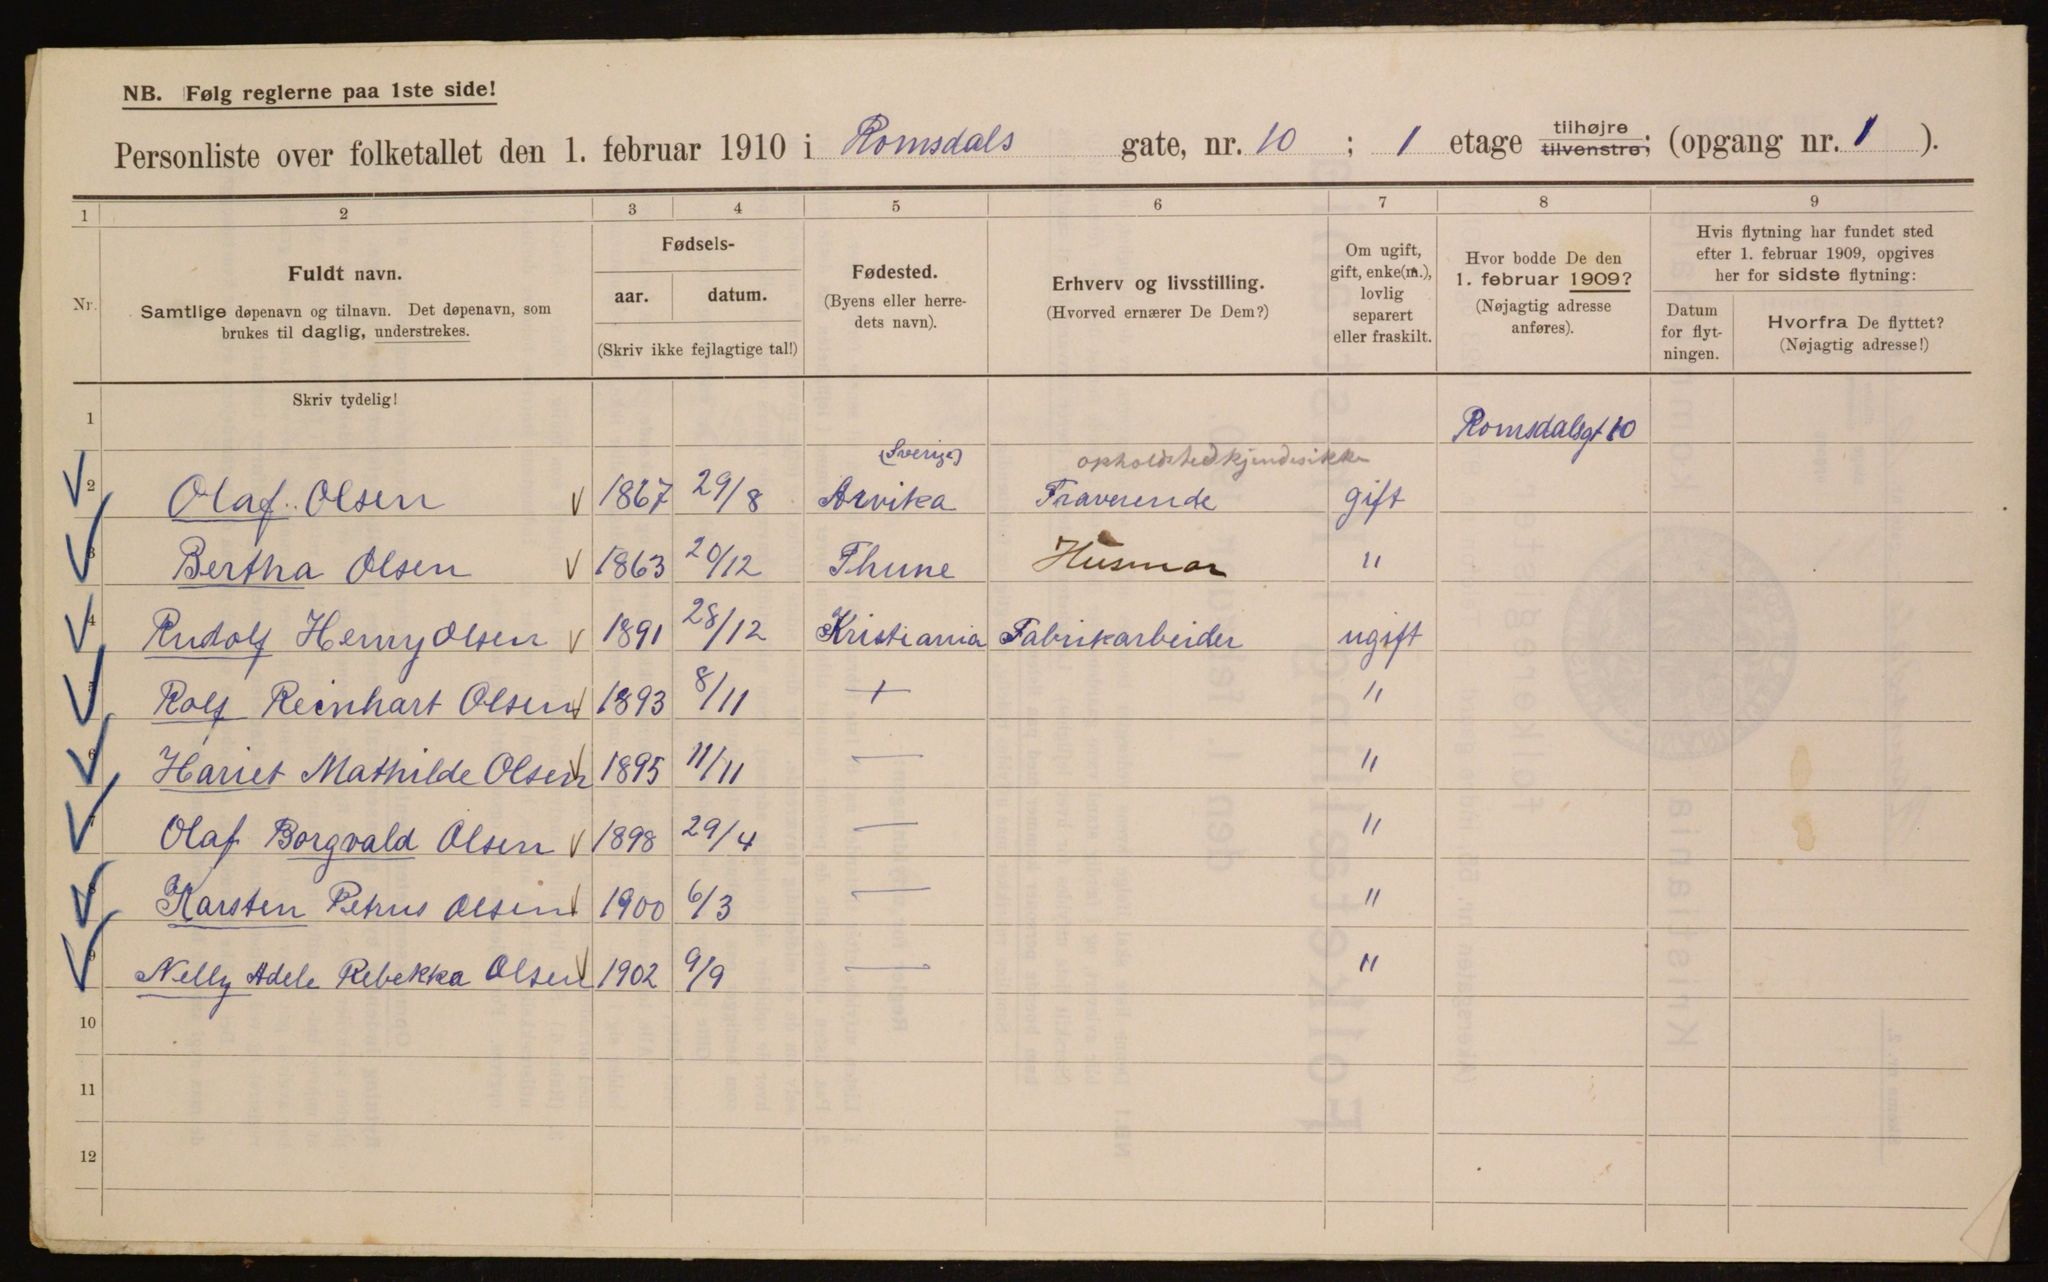 NB. Følg reglerne paa 1ste side!
Personliste over folketallet den 1. februar 1910 i Romsdals gate, nr. 10 ; 1 etage tilhøjre tilvenstre; (opgang nr. 1 ).
1 2 3 4 5 6 7 8 9
Nr.
Fuldt navn.
Samtlige døpenavn og tilnavn. Det døpenavn, som
brukes til daglig, understrekes.
Fødsels-
aar. datum.
(Skriv ikke fejlagtige tal!)
Fødested.
(Byens eller herre-
dets navn).
Erhverv og livsstilling.
(Hvorved ernærer De Dem?)
Om ugift,
gift, enke(m.),
lovlig
separert
eller fraskilt.
Hvor bodde De den
1. februar 1909?
(Nøjagtig adresse
anføres).
Hvis flytning har fundet sted
efter 1. februar 1909, opgives
her for sidste flytning:
Datum
for flyt-
ningen.
Hvorfra De flyttet?
(Nøjagtig adresse!)
Skriv tydelig!
1 Romsdalsgt 10
(Sverige) opholdsted kjendes ikke
2 Olaf Olsen 1867 29/8 Arvika Fraverende gift
3 Bertha Olsen 1863 20/12 Thune Husmor "
4 Rudolf Henry Olsen 1891 28/12 Kristiania Fabrikarbeider ugift
5 Rolf Reinhart Olsen 1893 8/11 + "
6 Hariet Mathilde Olsen 1895 11/11 — "
7 Olaf Borgvald Olsen 1898 29/4 — "
8 Karsten Petrus Olsen 1900 6/3 — "
9 Nelly Adele Rebekka Olsen 1902 9/9 — "
10
11
12